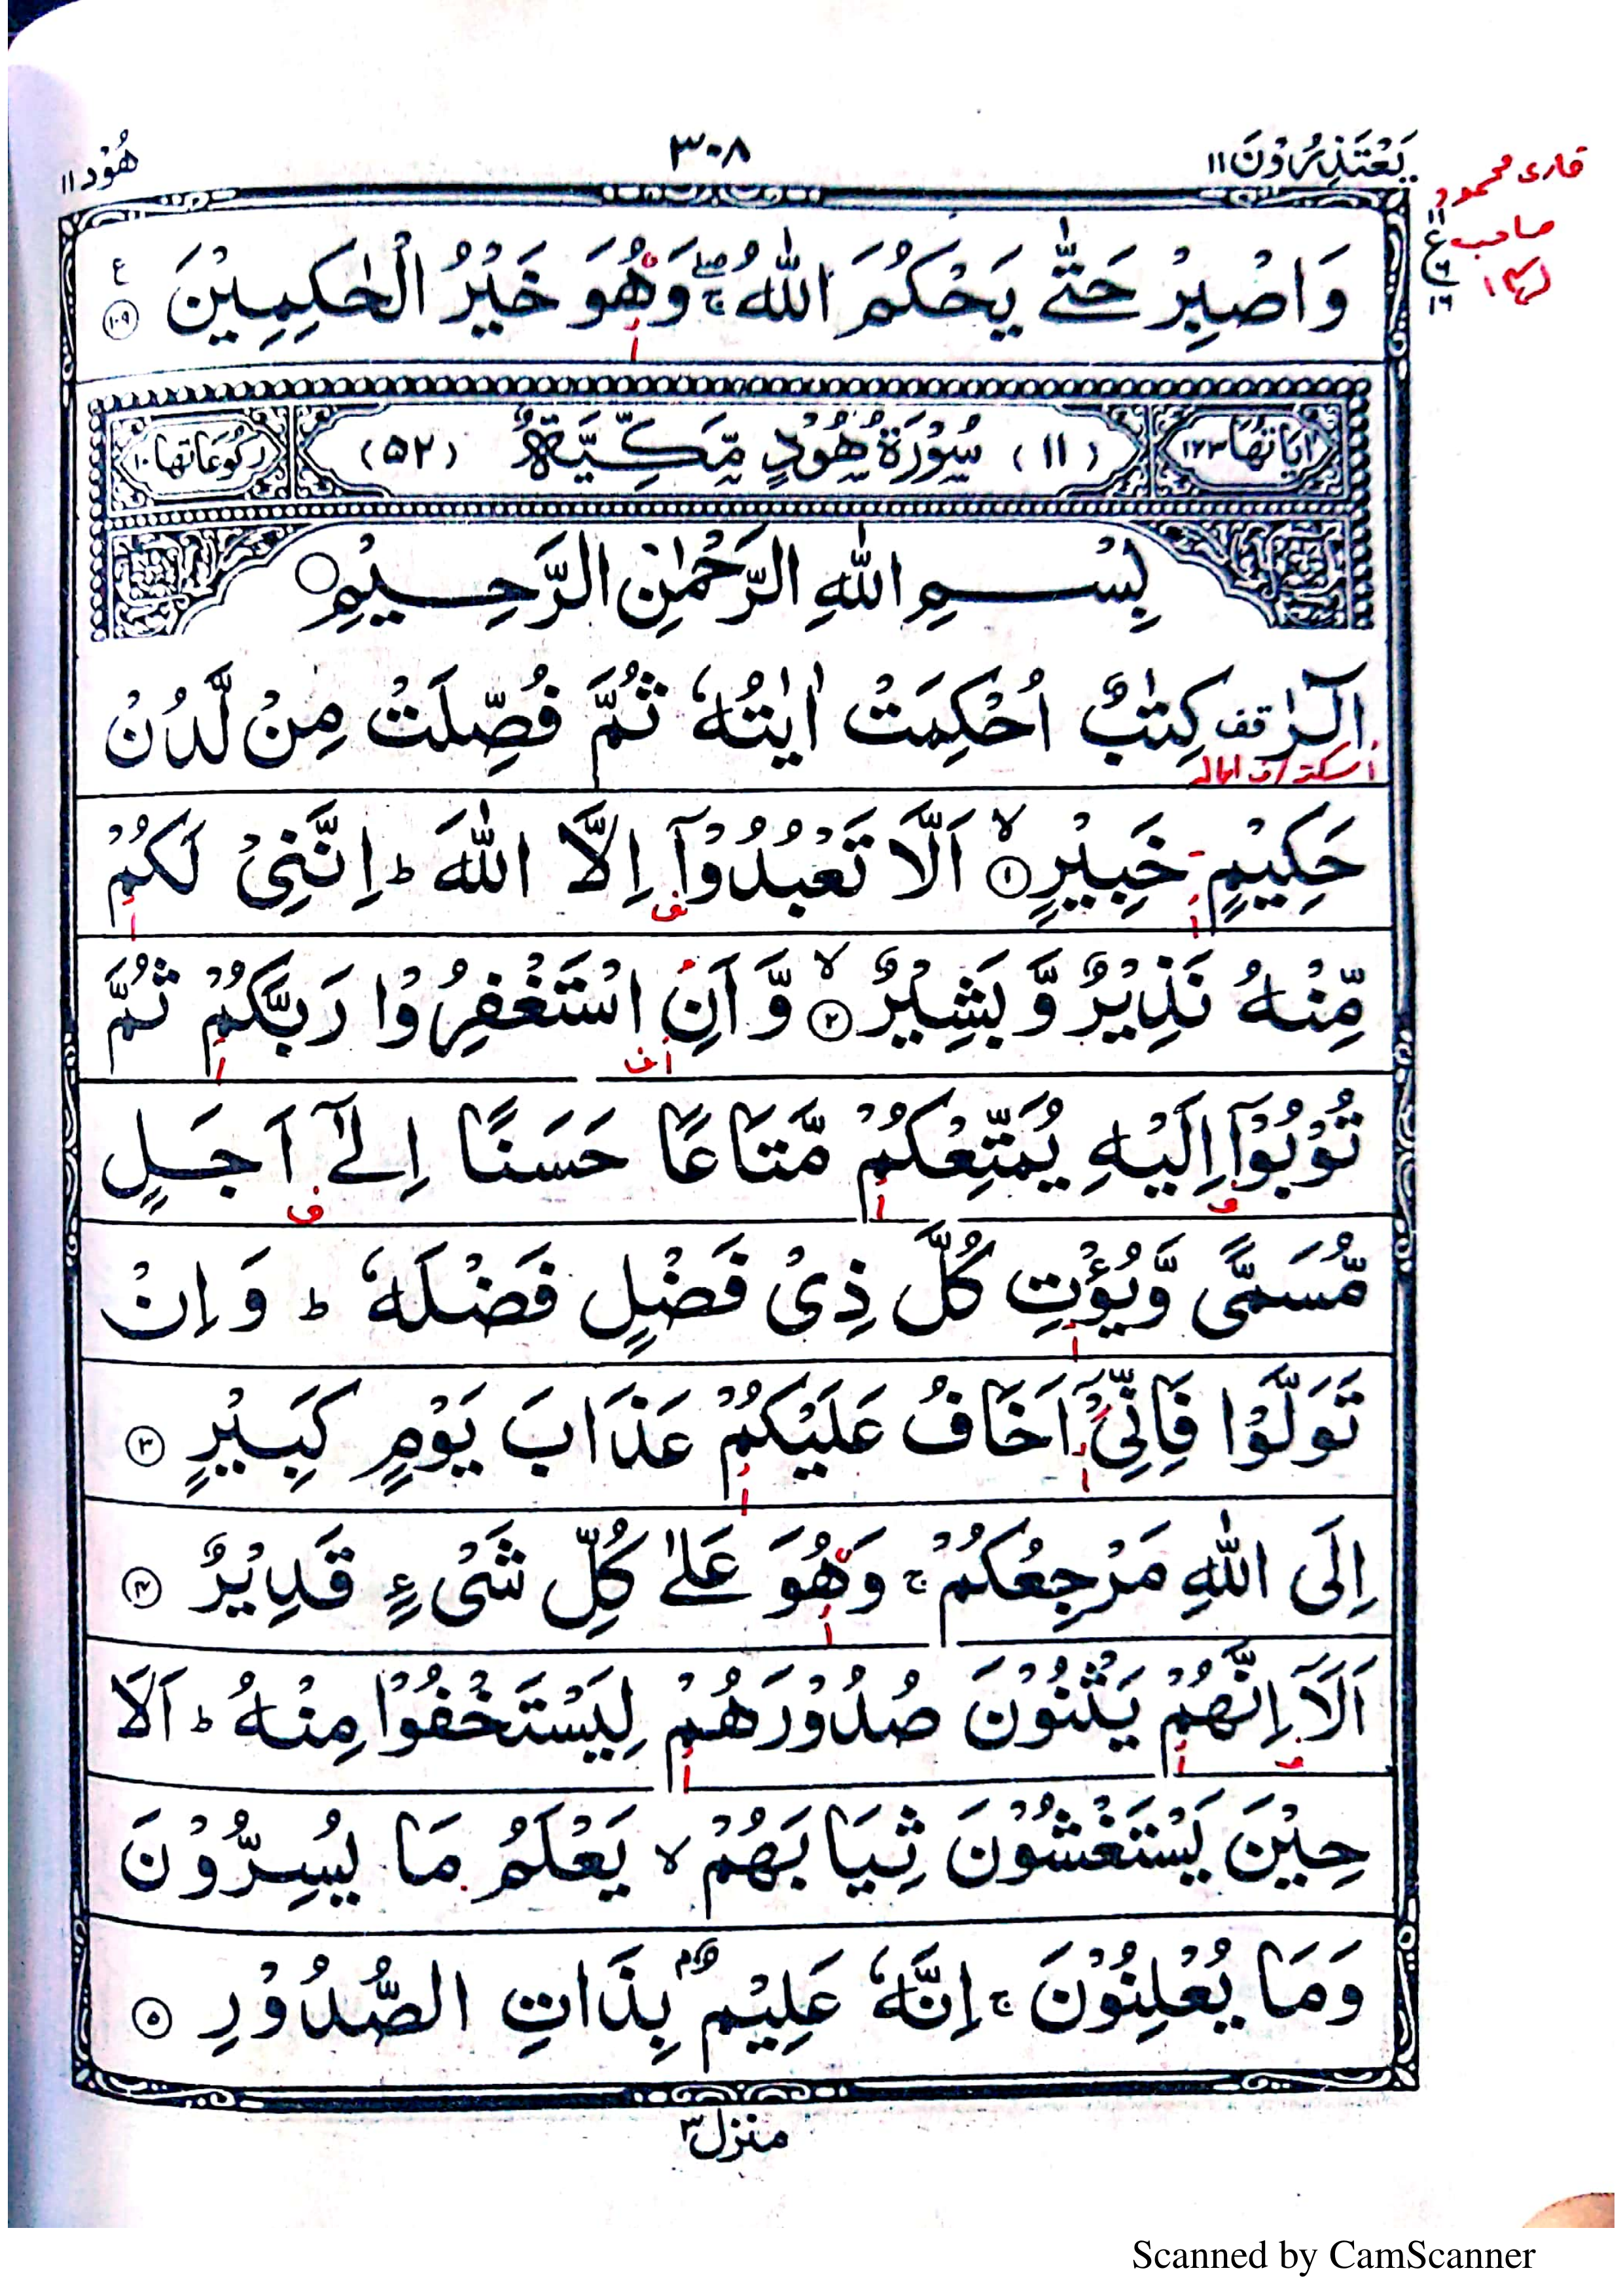 يَعْتَذِرُوْنَ ١١
٣٠٨
هُوْد ١١
قاری محمود
صاحب
وَاصْبِرْ حَتّٰى يَحْكُمَ اللّٰهُ ۖۚ وَهُوَ خَيْرُ الْحٰكِمِيْنَ ۧ ١٠٩
اٰيَاتُهَا ١٢٣ (١١) سُوْرَةُ هُوْدٍ مَّكِّيَّةٌ (٥٢) رُكُوْعَاتُهَا ١٠
بِسْمِ اللّٰهِ الرَّحْمٰنِ الرَّحِيْمِ ۝
الٓرٰ قف كِتٰبٌ اُحْكِمَتْ اٰيٰتُهٗ ثُمَّ فُصِّلَتْ مِنْ لَّدُنْ
حَكِيْمٍ خَبِيْرٍ ۙ ١ اَلَّا تَعْبُدُوْٓا اِلَّا اللّٰهَ ؕ اِنَّنِيْ لَكُمْ
مِّنْهُ نَذِيْرٌ وَّبَشِيْرٌ ۙ ٢ وَّاَنِ اسْتَغْفِرُوْا رَبَّكُمْ ثُمَّ
تُوْبُوْٓا اِلَيْهِ يُمَتِّعْكُمْ مَّتَاعًا حَسَنًا اِلٰٓى اَجَلٍ
مُّسَمًّى وَّيُؤْتِ كُلَّ ذِيْ فَضْلٍ فَضْلَهٗ ؕ وَاِنْ
تَوَلَّوْا فَاِنِّيْٓ اَخَافُ عَلَيْكُمْ عَذَابَ يَوْمٍ كَبِيْرٍ ٣
اِلَى اللّٰهِ مَرْجِعُكُمْ ۚ وَهُوَ عَلٰى كُلِّ شَيْءٍ قَدِيْرٌ ٤
اَلَآ اِنَّهُمْ يَثْنُوْنَ صُدُوْرَهُمْ لِيَسْتَخْفُوْا مِنْهُ ؕ اَلَا
حِيْنَ يَسْتَغْشُوْنَ ثِيَابَهُمْ ۙ يَعْلَمُ مَا يُسِرُّوْنَ
وَمَا يُعْلِنُوْنَ ۚ اِنَّهٗ عَلِيْمٌۢ بِذَاتِ الصُّدُوْرِ ٥
منزل ٣
Scanned by CamScanner